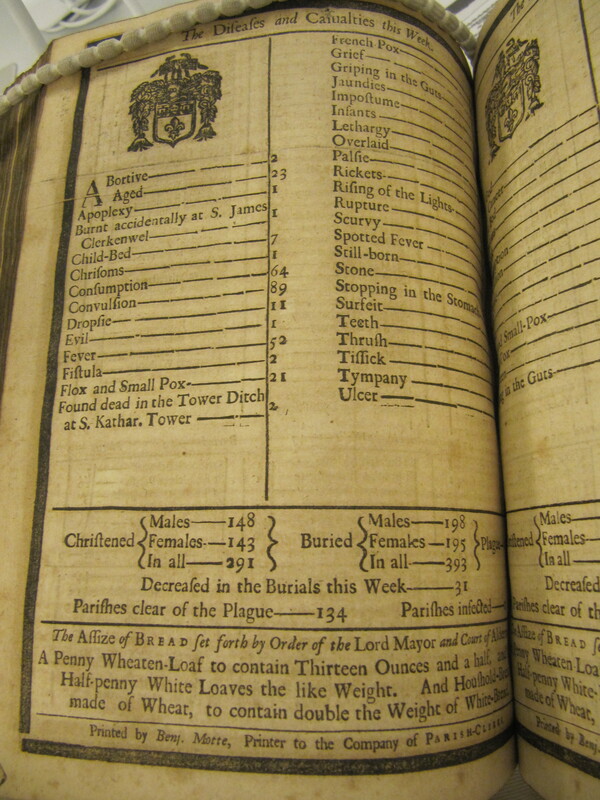 The Diſeaſes and Caſualties this Week.
Abortive 2
Aged 23
Apoplexy 1
Burnt accidentally at S. James
Clerkenwel 1
Child-Bed 7
Chriſoms 1
Conſumption 64
Convulſion 89
Dropſie 11
Evil 1
Fever 52
Fiſtula 2
Flox and Small Pox 21
Found dead in the Tower Ditch
at S. Kathar. Tower 2
French-Pox
Grief
Griping in the Guts
Jaundies
Impoſtume
Infants
Lethargy
Overlaid
Palſie
Rickets
Riſing of the Lights
Rupture
Scurvy
Spotted Fever
Still-born
Stone
Stopping in the Stomac
Surfeit
Teeth
Thruſh
Tiſſick
Tympany
Ulcer
Chriſtened
Males 148
Females 143
In all 291
Buried
Males 198
Females 195
In all 393
Plague
Decreaſed in the Burials this Week 31
Pariſhes clear of the Plague 134 Pariſhes infected
The Aſſize of BREAD ſet forth by Order of the Lord Mayor and Court of
A Penny Wheaten-Loaf to contain Thirteen Ounces and a half,
Half-penny White Loaves the like Weight. And Houſhold-
made of Wheat, to contain double the Weight of White-
Printed by Benj. Motte, Printer to the Company of PARISH-CLERKS
The
Small-Pox
in the Guts
Males
Females
In all
Decreaſed
Pariſhes clear of th